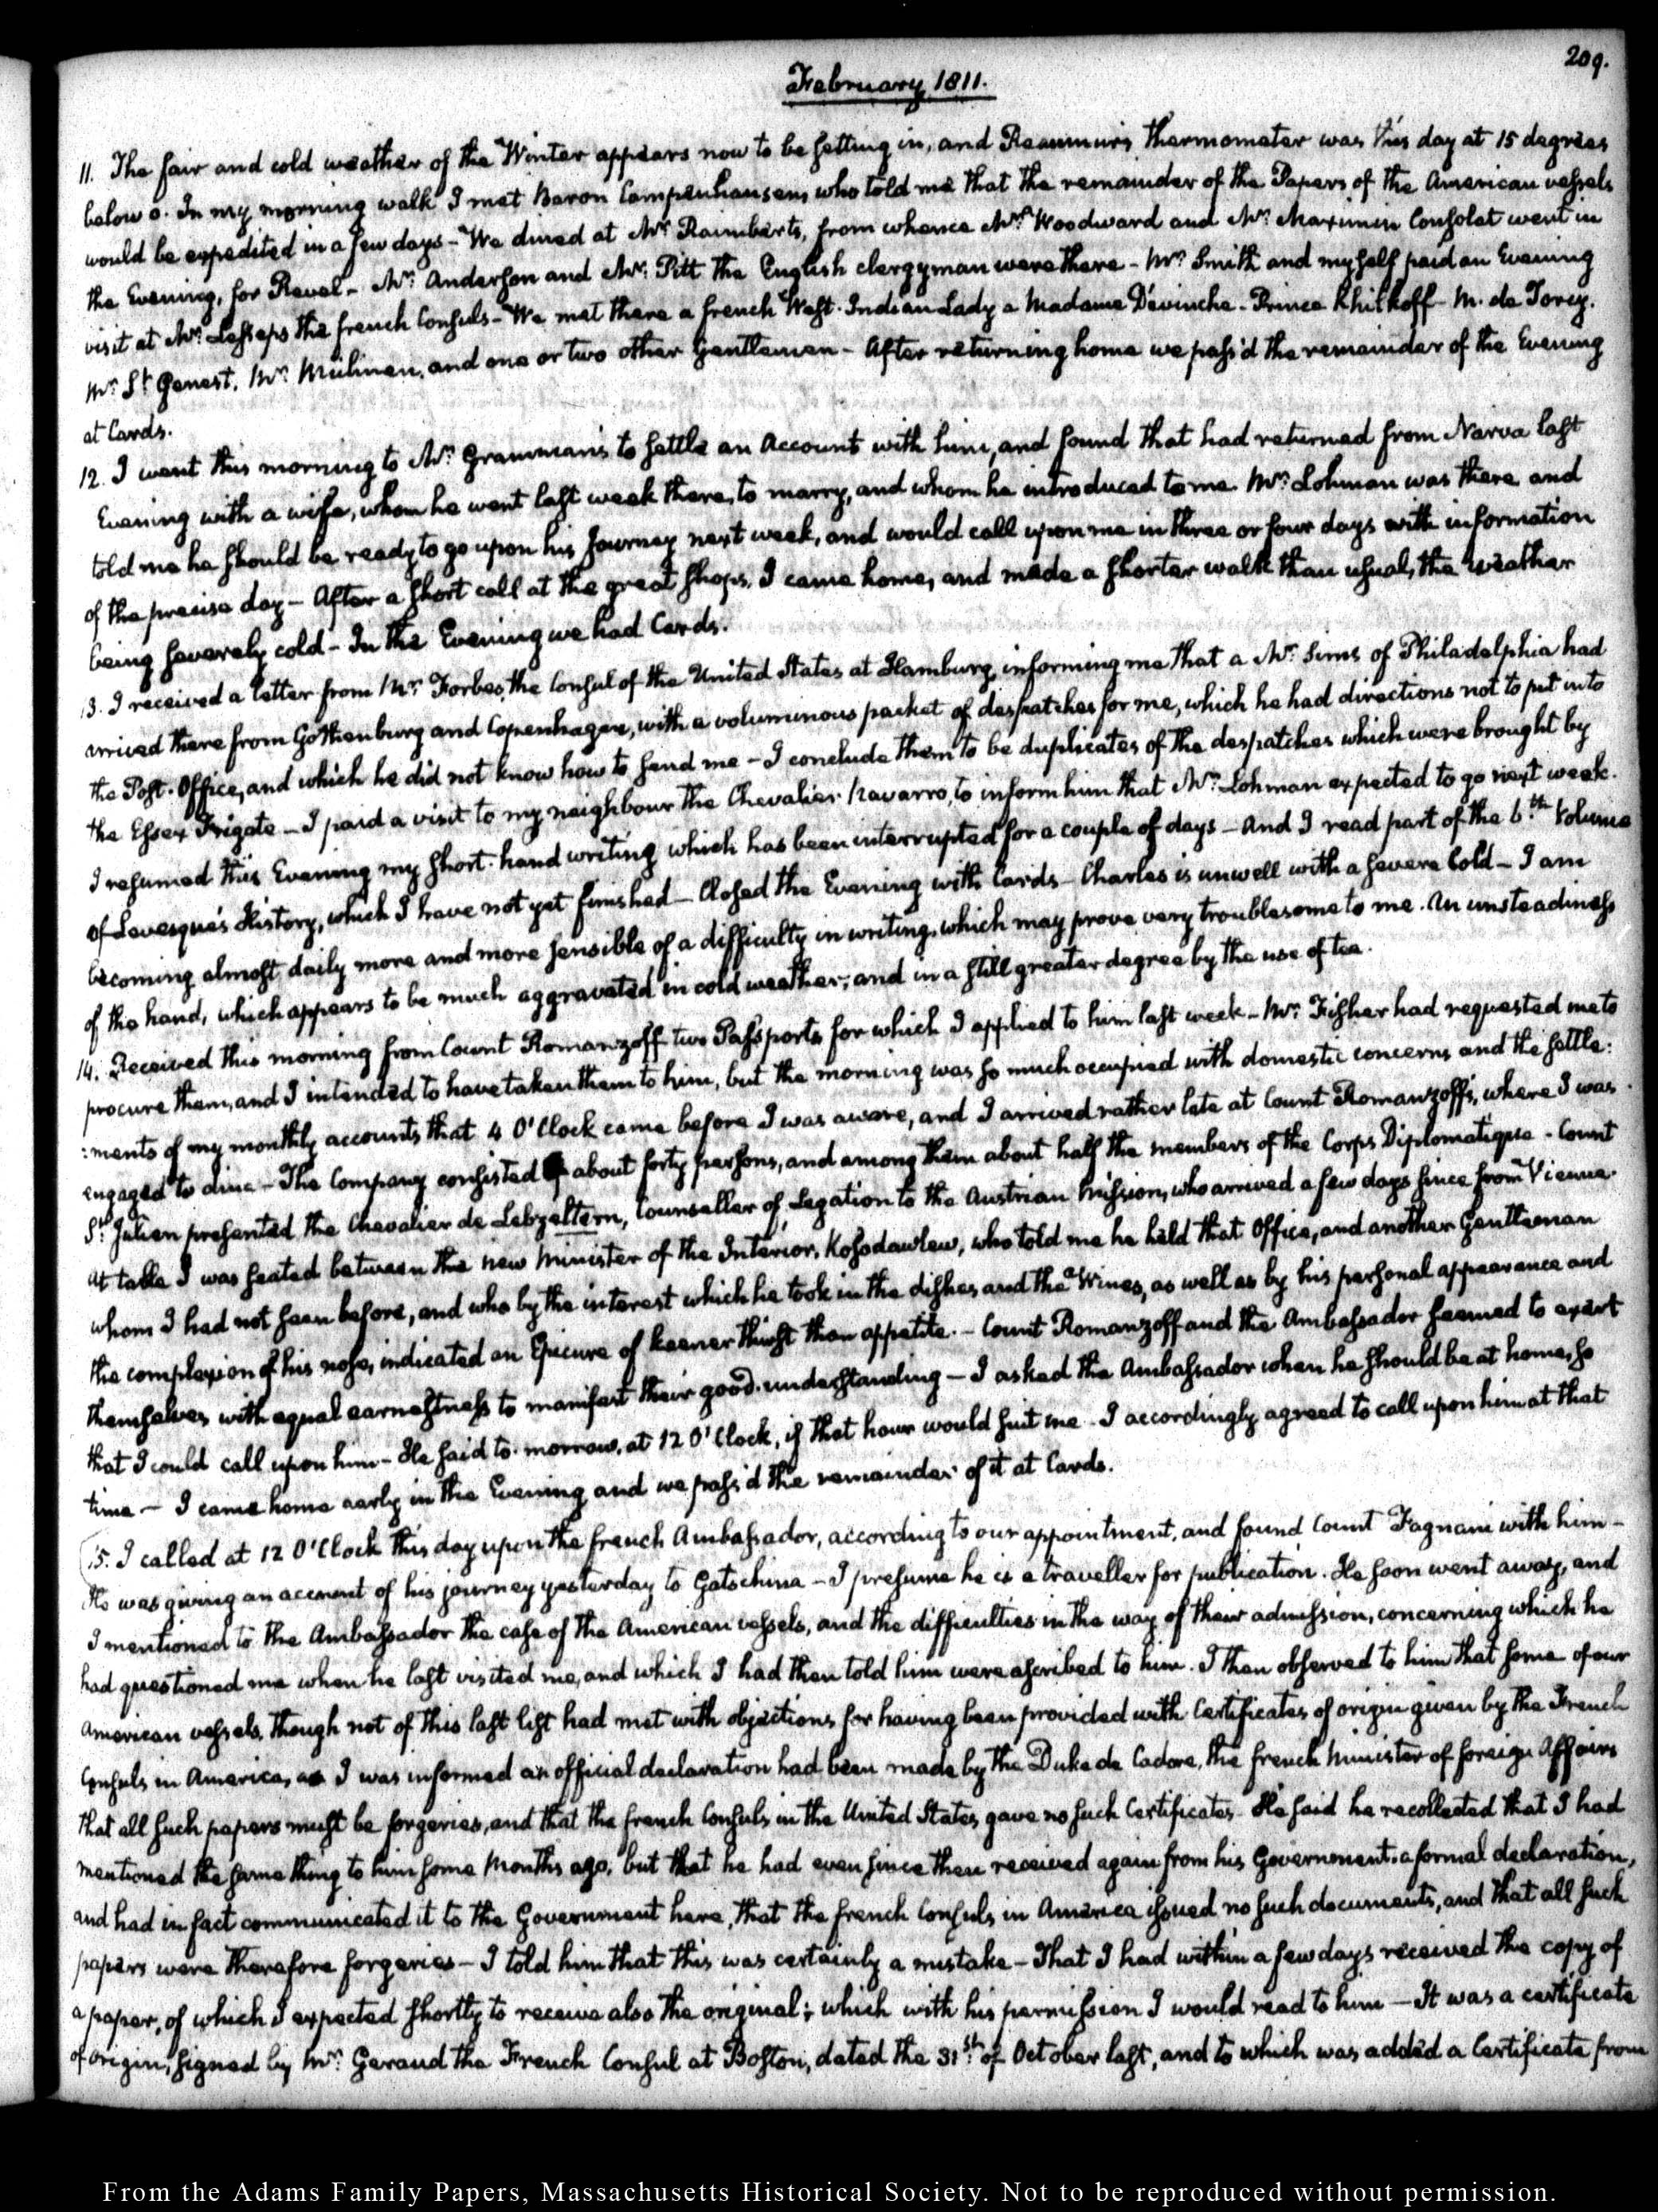 209.
February 1811.
11. The fair and cold weather of the Winter appears now to be setting in, and Reaumur's Thermometer was this day at 15 degrees
below 0. In my morning walk I met Baron Campenhausen, who told me that the remainder of the Papers of the American vessels
would be expedited in a few days - We dined at Mr. Raimbert's, from whence Mr. Woodward and Mr. Maximin Consolat went in
the Evening, for Reval - Mr. Anderson and Mr. Pitt the English clergyman were there - Mr. Smith and myself paid an Evening
visit at Mr. Lesseps the french Consul's - We met there a french West-Indian Lady a Madame Dévinche - Prince Khilkoff - M. de Torcy.
Mr. St. Genest, Mr. Mülinen, and one or two other Gentlemen - After returning home we pass'd the remainder of the Evening
at Cards.
12. I went this morning to Mr. Grammann's to settle an Account with him, and found that had returned from Narva last
Evening with a wife, whom he went last week there, to marry, and whom he introduced to me. Mr. Lohman was there and
told me he should be ready to go upon his Journey next week, and would call upon me in three or four days with information
of the precise day - After a short call at the great shops, I came home, and made a shorter walk than usual, the weather
being severely cold - In the Evening we had Cards.
13. I received a letter from Mr. Forbes, the Consul of the United States at Hamburg, informing me that a Mr. Sims of Philadelphia had
arrived there from Gothenburg and Copenhagen, with a voluminous packet of despatches for me, which he had directions not to put into
the Post-Office, and which he did not know how to send me - I conclude them to be duplicates of the despatches which were brought by
the Essex Frigate - I paid a visit to my neighbour the Chevalier Navarro, to inform him that Mr. Lohman expected to go next week.
I resumed this Evening my short-hand writing which has been interrupted for a couple of days - And I read part of the 6.th Volume
of Levesque's History, which I have not yet finished - Closed the Evening with Cards - Charles is unwell with a severe Cold - I am
becoming almost daily more and more sensible of a difficulty in writing, which may prove very troublesome to me. An unsteadiness
of the hand, which appears to be much aggravated in cold weather, and in a still greater degree by the use of tea.
14. Received this morning from Count Romanzoff two Passports for which I applied to him last week - Mr. Fisher had requested me to
procure them, and I intended to have taken them to him, but the morning was so much occupied with domestic concerns and the settle:
:ments of my monthly accounts that 4 O'Clock came before I was aware, and I arrived rather late at Count Romanzoff's, where I was
engaged to dine - The Company consisted of about forty persons, and among them about half the members of the Corps Diplomatique - Count
St. Julien presented the Chevalier de Lebzeltern, Counsellor of Legation to the Austrian Mission, who arrived a few days since from Vienna.
At table I was seated between the new Minister of the Interior, Kosodawlew, who told me he held that Office, and another Gentleman
whom I had not seen before, and who by the interest which he took in the dishes and the Wines, as well as by his personal appearance and
the complexion of his nose, indicated an Epicure of keener thirst than appetite. - Count Romanzoff and the Ambassador seemed to exert
themselves with equal earnestness to manifest their good understanding - I asked the Ambassador when he should be at home, so
that I could call upon him - He said to-morrow, at 12 O'Clock, if that hour would suit me - I accordingly agreed to call upon him at that
time - I came home early in the Evening and we pass'd the remainder of it at Cards.
15. I called at 12 O'Clock this day upon the french Ambassador, according to our appointment, and found Count Fagnani with him -
He was giving an account of his journey yesterday to Gatschina - I presume he is a traveller for publication. He soon went away, and
I mentioned to the Ambassador the case of the American vessels, and the difficulties in the way of their admission, concerning which he
had questioned me when he last visited me, and which I had then told him were ascribed to him. I then observed to him that some of our
American vessels, though not of this last list had met with objections for having been provided with Certificates of origin given by the French
Consuls in America, as I was informed an official declaration had been made by the Duke de Cadore, the french Minister of foreign Affairs
that all such papers must be forgeries, and that the french Consuls in the United States gave no such Certificates - He said he recollected that I had
mentioned the same thing to him some Months ago, but that he had even since then received again from his Government a formal declaration,
and had in fact communicated it to the Government here, that the french Consuls in America issued no such documents, and that all such
papers were therefore forgeries - I told him that this was certainly a mistake - That I had within a few days received the copy of
a paper, of which I expected shortly to receive also the original; which with his permission I would read to him - It was a certificate
of origin, signed by Mr. Geraud the French Consul at Boston, dated the 31st. of October last, and to which was added a Certificate from
From the Adams Family Papers, Massachusetts Historical Society. Not to be reproduced without permission.